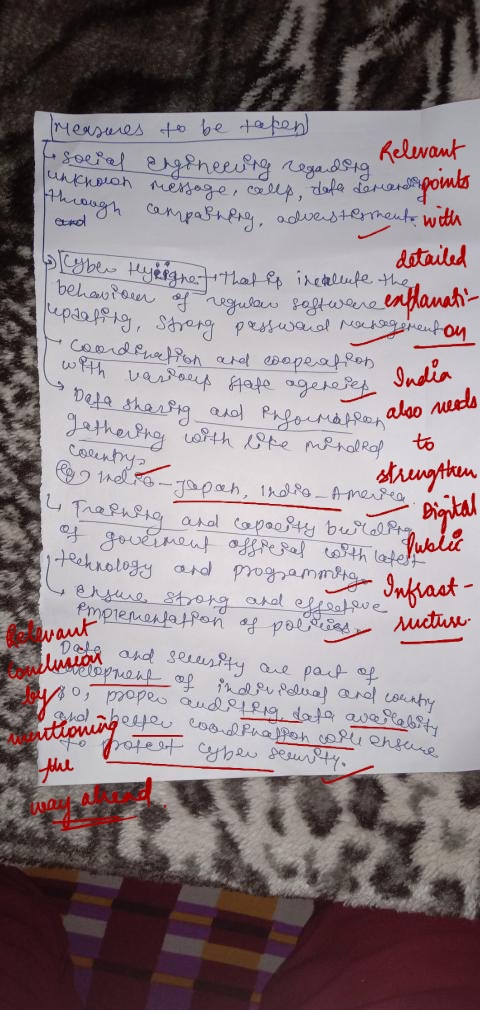 Measures to be taken
Social engineering regarding
unknown message, calls, data demanding
through campaining, adverstiement.
and
Cyber Hyiigne → That is include the
behaviour of regular software
updating, strong password management
Coordination and cooperation
with various state agencies
Data sharing and information
gathering with like minded
country.
eg) India - Japan, India - America.
Training and capacity building
of goverment official with latest
technology and programming
ensure strong and effective
implementation of policies.
Data and security are part of
development of individual and country
so, proper auditing, data availability
and better coordination will ensure
to protect cyber security.
Relevant
points
with
detailed
explanati-
on
India
also needs
to
strengthen
Digital
Public
Infrast-
ructure.
Relevant
conclusion
by
mentioning
the
way ahead.